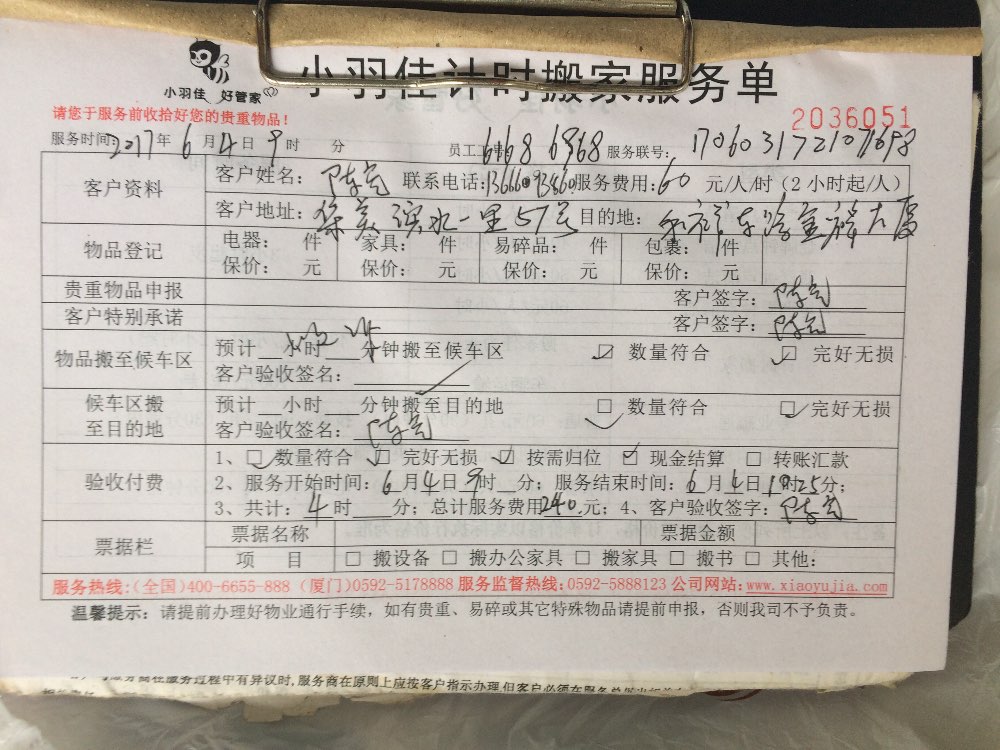 小羽佳计时搬家服务单
小羽佳 好管家
请您于服务前收拾好您的贵重物品!
2036051
服务时间: 2017年 6月4日9时 分 员工工号: 6668 6968 服务联号:
客户资料 客户姓名: 陈亮 联系电话: 服务费用: 60 元/人/时（2小时起/人）
客户地址: 滨水一里57号 目的地: 大厦
物品登记 电器: 件 家具: 件 易碎品: 件 包裹: 件
保价: 元 保价: 元 保价: 元 保价: 元
贵重物品申报 客户签字: 陈亮
客户特别承诺 客户签字: 陈亮
物品搬至候车区 预计__小时___分钟搬至候车区 ☑ 数量符合 ☑ 完好无损
客户验收签名:
候车区搬至目的地 预计__小时___分钟搬至目的地 ☑ 数量符合 ☑ 完好无损
客户验收签名: 陈亮
验收付费 1、☑ 数量符合 ☑ 完好无损 ☑ 按需归位 ☑ 现金结算 □ 转账汇款
2、服务开始时间: 6月4日9时__分; 服务结束时间: 6月4日1时25分;
3、共计: 4时___分; 总计服务费用240元; 4、客户验收签字: 陈亮
票据栏 票据名称 票据金额
项 目 □ 搬设备 □ 搬办公家具 □ 搬家具 □ 搬书 □ 其他:
服务热线:(全国)400-6655-888 (厦门)0592-5178888 服务监督热线:0592-5888123 公司网站:www.xiaoyujia.com
温馨提示: 请提前办理好物业通行手续，如有贵重、易碎或其它特殊物品请提前申报，否则我司不予负责。
服务商在服务过程中有异议时,服务商在原则上应按客户指示办理,但客户必须在服务